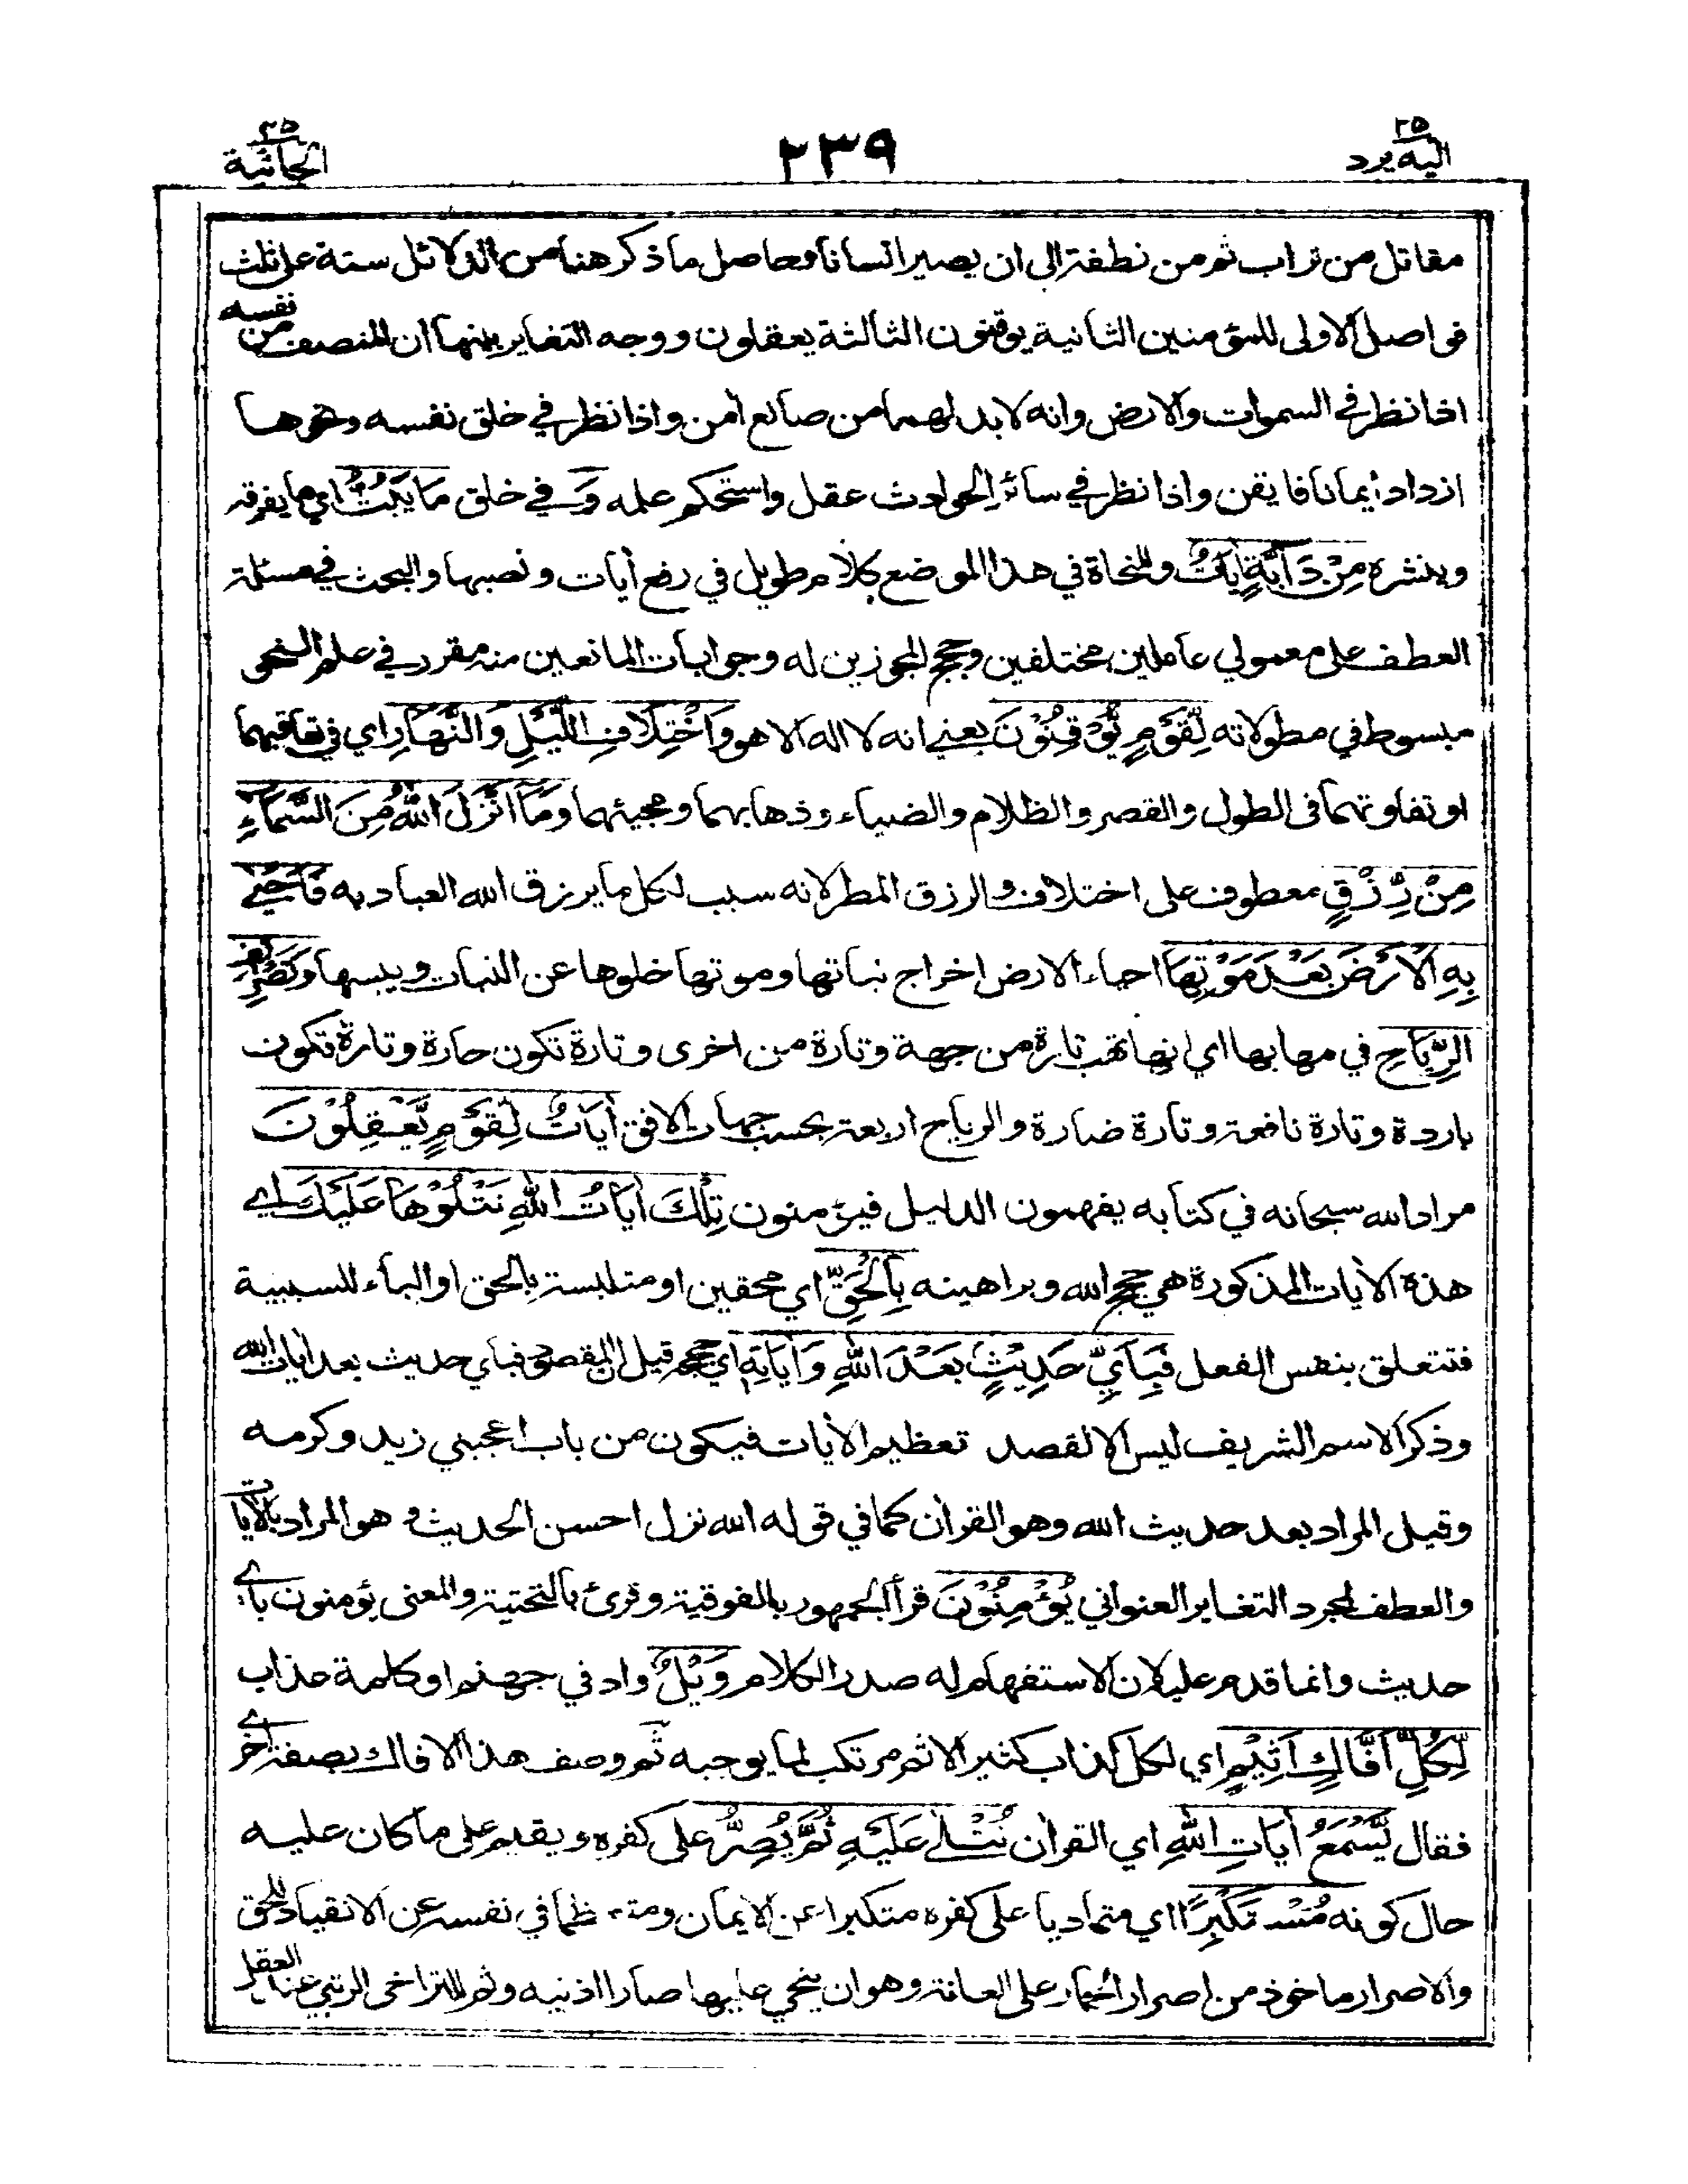 ٢٥
اليه يرد
٢٣٩
٢٥
الجاثية
مقاتل من تراب ثم من نطفة الى ان يصير انسانا وحاصل ما ذكر هنا من الدلائل ستة على ثلث
فواصل الاولى للمؤمنين الثانية يوقنون الثالثة يعقلون ووجه التغاير بينها ان المنصف من نفسه
اذا نظر في السموات والارض وانه لا بد لهما من صانع أمن واذا نظر في خلق نفسه ونحوها
ازداد أيمانا فايقن واذا نظر في سائر الحوادث عقل واستحكم علمه وَفي خلق مَا يَبُثُّ اي ما يفرقه
وينشره مِنْ دَآبَّةٍ أيَاتٌ وللنحاة في هذا الموضع كلام طويل في رفع أيات ونصبها والبحث في مسئلة
العطف على معمولي عاملين مختلفين وحجج المجوزين له وجوابات المانعين منه مقرر في علم النحو
مبسوط في مطولاته لِّقَوْمٍ يُّوْقِنُوْنَ يعني انه لا اله الا هو وَاخْتِلَافِ اللَّيْلِ وَالنَّهَارِ اي في تعاقبهما
او تفاوتهما في الطول والقصر والظلام والضياء وذهابهما ومجيئهما وَمَآ اَنْزَلَ اللّٰهُ مِنَ السَّمَآءِ
مِنْ رِّزْقٍ معطوف على اختلاف والرزق المطر لانه سبب لكل ما يرزق الله العباد به فَاَحْيَا
بِهِ الْاَرْضَ بَعْدَ مَوْتِهَا احياء الارض اخراج نباتها وموتها خلوها عن النبات ويبسها وَتَصْرِيْفِ
الرِّيَاحِ في مهابها اي انها تهب تارة من جهة وتارة من اخرى وتارة تكون حارة وتارة تكون
باردة وتارة نافعة وتارة ضارة والرياح اربعة بحسب جهات الافق أيَاتٌ لِّقَوْمٍ يَّعْقِلُوْنَ
مراد الله سبحانه في كتابه يفهمون الدليل فيؤمنون تِلْكَ أيَاتُ اللّٰهِ نَتْلُوْهَا عَلَيْكَ اي
هذه الأيات المذكورة هي حجج الله وبراهينه بِالْحَقِّ اي محقين او متلبسة بالحق او الباء للسببية
فتتعلق بنفس الفعل فَبِاَيِّ حَدِيْثٍ بَعْدَ اللّٰهِ وَأيَاتِهٖ اي حججه قيل ان المقصود فباي حديث بعد أيات الله
وذكر الاسم الشريف ليس الا لقصد تعظيم الأيات فيكون من باب اعجبني زيد وكرمه
وقيل المراد بعد حديث الله وهو القرأن كما في قوله الله نزل احسن الحديث وهو المراد بالأيات
والعطف لمجرد التغاير العنواني يُؤْمِنُوْنَ قرأ الجمهور بالفوقية وقرئ بالتحتية والمعنى يؤمنون باي
حديث وانما قدم عليه لان الاستفهام له صدر الكلام وَيْلٌ واد في جهنم او كلمة عذاب
لِّكُلِّ اَفَّاكٍ اَثِيْمٍ اي لكل كذاب كثير الاثم مرتكب لما يوجبه ثم وصف هذا الافاك بصفة اخرى
فقال يَّسْمَعُ أيَاتِ اللّٰهِ اي القرأن تُتْلٰى عَلَيْهِ ثُمَّ يُصِرُّ على كفره ويقيم على ما كان عليه
حال كونه مُسْتَكْبِرًا اي متماديا على كفره متكبرا عن الايمان ومتعظما في نفسه عن الانقياد للحق
والاصرار ماخوذ من اصرار الحمار على العانة وهو ان ينحي عليها صارا اذنيه وثم للتراخي الرتبي عند العقل